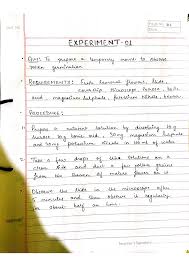 EXPERIMENT-01
AIM: To prepare a temporary mount to observe
pollen germination.
REQUIREMENTS: Fresh seasonal flowers, slide,
coverslip, microscope, sucrose, boric
acid, magnesium sulphate, potassium nitrate
PROCEDURE:
1. Prepare a nutrient solution by dissolving 10g
sucrose, 10g boric acid, 30mg magnesium sulphate
and 20mg potassium nitrate in 100ml of water
2. Take a few drops of this solution on a
clean slide and dust a few pollen grains
from the stamen of mature flower on it
3. Observe the slide in the microscope after
5 minutes and then observe it regularly
for about half an hour.